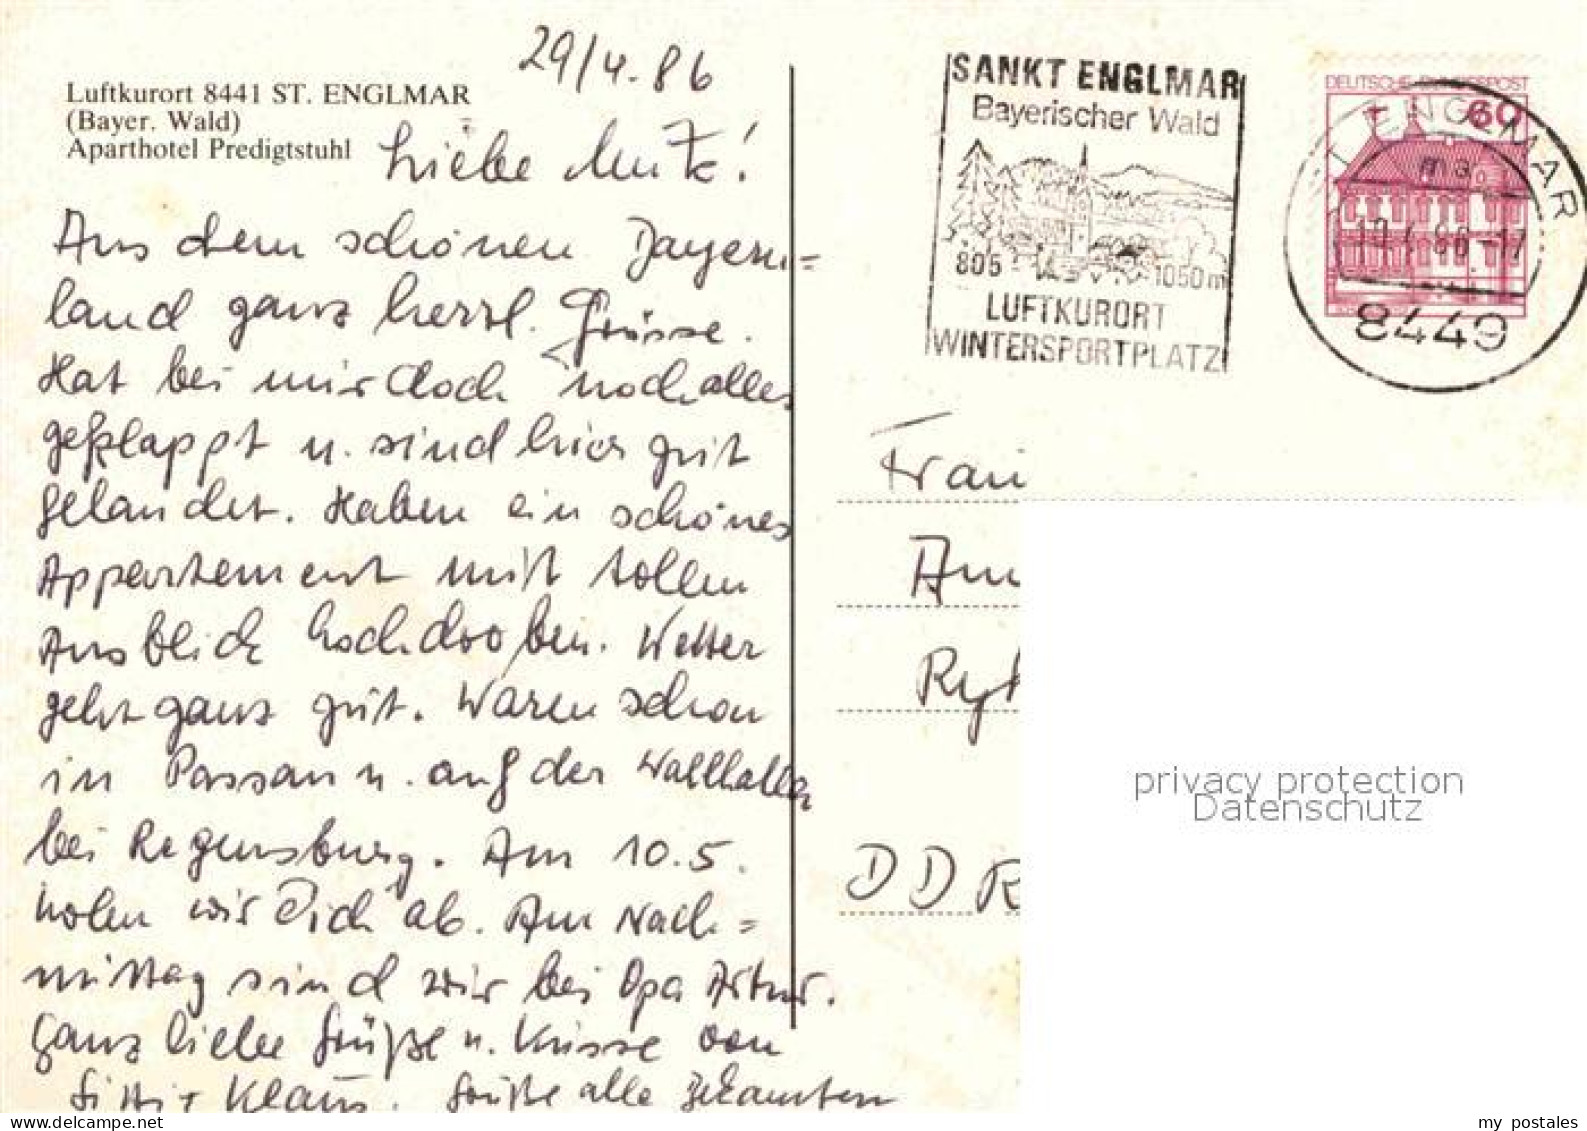 29/4.86
Luftkurort 8441 ST. ENGLMAR
(Bayer. Wald)
Aparthotel Predigtstuhl
Liebe Mutz!
Aus dem schönen Bayern=
land ganz herzl. Grüsse.
Hat bei mir doch noch alles
geklappt u. sind hier gut
gelandet. Haben ein schönes
Appartement mit tollen
Ausblick hochdroben. Wetter
geht ganz gut. Waren schon
in Passau u. auf der Wallhalla
bei Regensburg. Am 10.5.
holen wir Dich ab. Am Nach=
mittag sind wir bei Opa Artur.
Ganz liebe Grüße u. Küsse von
Klaus. Grüße alle Bekannten
SANKT ENGLMAR
Bayerischer Wald
805 - 1050 m
LUFTKURORT
WINTERSPORTPLATZ
DEUTSCHE BUNDESPOST
60
ENGLMAR
8449
Frau
DDR
privacy protection
Datenschutz
my postales